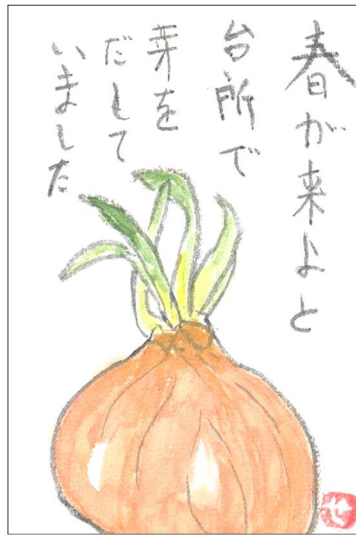 春が来よと
台所で
芽を
だして
いました